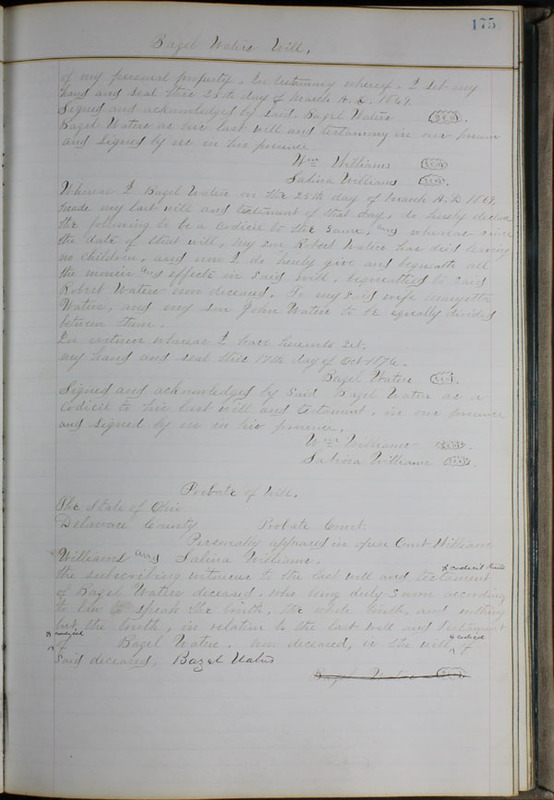 175
Bazel Waters Will.
of my personal property. In testimony whereof, I set my
hand and seal this 25th day of March A.D. 1869.
Signed and acknowledged by said Bazel Waters (seal)
Bazel Waters as his last will and testimony in our presence
and signed by us in his presence
Wm Williams (seal)
Salina Williams (seal).
Whereas I Bazel Waters on the 25th day of March A.D. 1869.
made my last will and testament of that day, do hereby declare
the following to be a codicil to the same, and whereas since
the date of that will, my son Robert Waters has died leaving
no children, and now I do hereby give and bequeath all
the monies and effects in said will, bequeathed to said
Robert Waters now deceased. To my said wife
Waters, and my son John Waters to be equally divided
between them.
In witness whereof I have hereunto set.
my hand and seal this 17th day of Oct 1876.
Bazel Waters (seal).
Signed and acknowledged by said Bazel Waters as a
codicil to his last will and testament, in our presence
and signed by us in his presence.
Wm Williams (seal)
Salina Williams (seal).
Probate of Will.
The State of Ohio
Delaware County Probate Court.
Personally appeared in open Court William
Williams and Salina Williams.
& codicil
the subscribing witnesses to the last will and testament
of Bazel Waters deceased, who being duly sworn according
to law to speak the truth, the whole truth, and nothing
but the truth, in relation to the last will and testament
& codicil
of Bazel Waters. now deceased, is the will & codicil of
said deceased, Bazel Waters
Bazel Waters (seal)